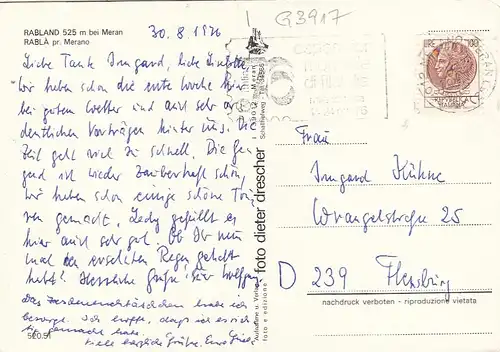 RABLAND 525 m bei Meran
RABLÀ pr. Merano
30.8.1976
G3917
Liebe Tante Irmgard, liebe
wir haben schon die erste Woche hier
bei gutem Wetter und mit sehr or-
dentlichen Vorträgen hinter uns. Die
Zeit geht viel zu schnell. Die Ge-
gend ist wieder zauberhaft schön,
wir haben schon einige schöne Tou-
ren gemacht. Lady gefällt es
hier auch sehr gut. Ob Ihr nun
mal den ersehnten Regen gehabt
habt? Herzliche Grüße Euer Wolfgang
Das habe ich
besorgt. Ich hoffe, daß ich es rich-
tig gemacht habe.
Viele herzliche Grüße, Eure
520.51
foto dieter drescher
Aufnahme u. Verlag
foto e edizione
I-39012 Meran
LIRE 100
Frau
Irmgard Kühne
Wrangelstraße 25
D 239 Flensburg
nachdruck verboten - riproduzione vietata